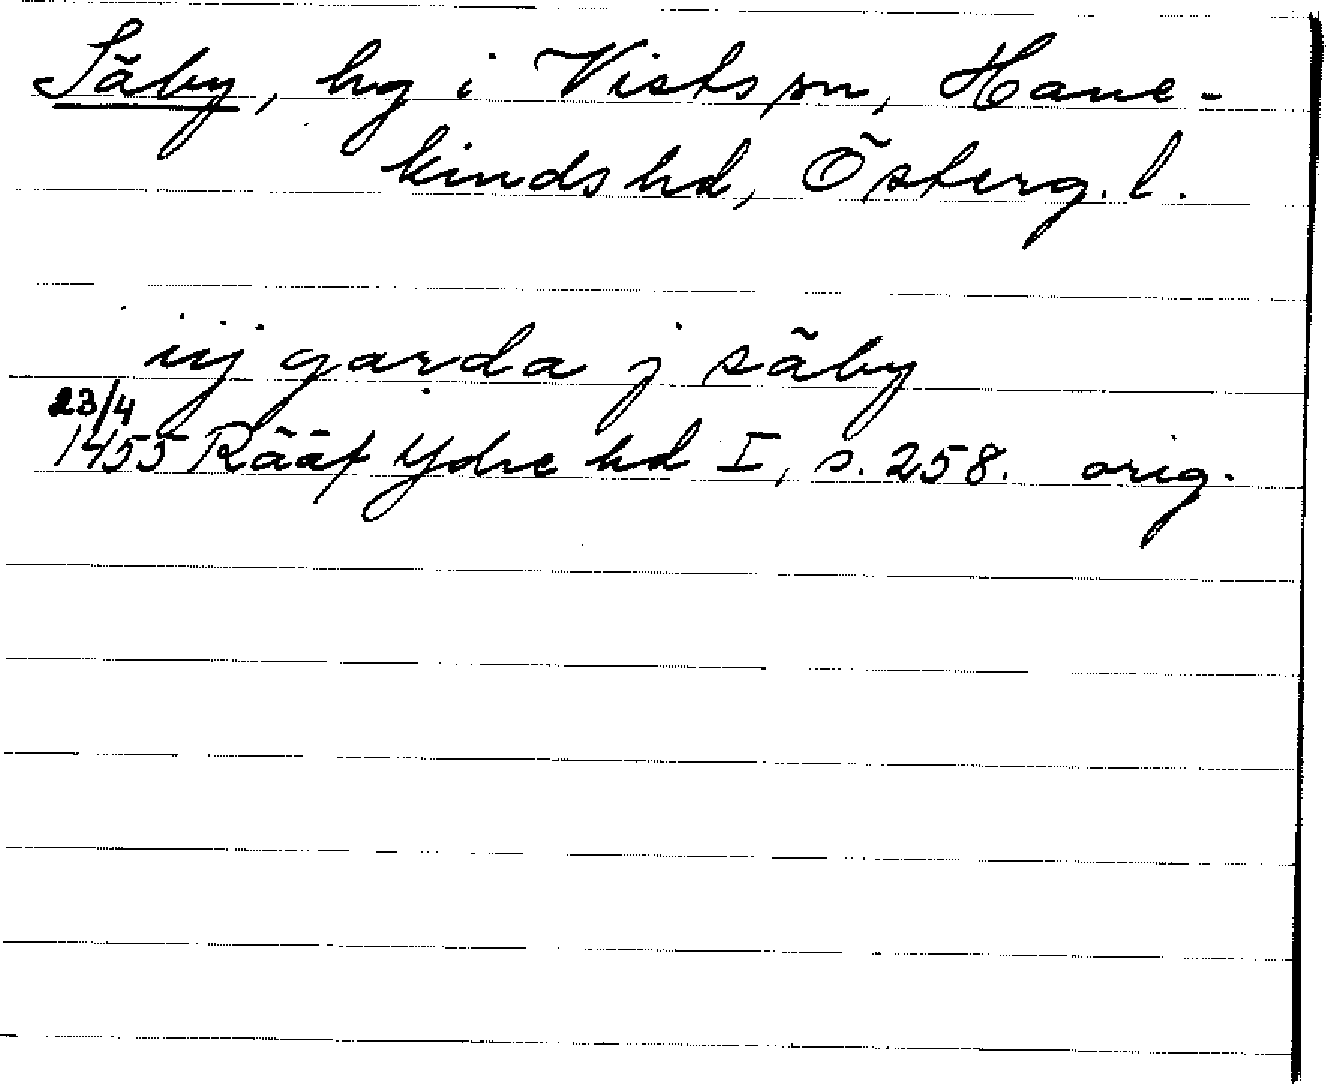 Säby, hg i Vists sn, Hane-
kinds hd, Österg. l.
iij garda j säby
23/4
1455 Rääf Ydre hd I, s. 258. orig.